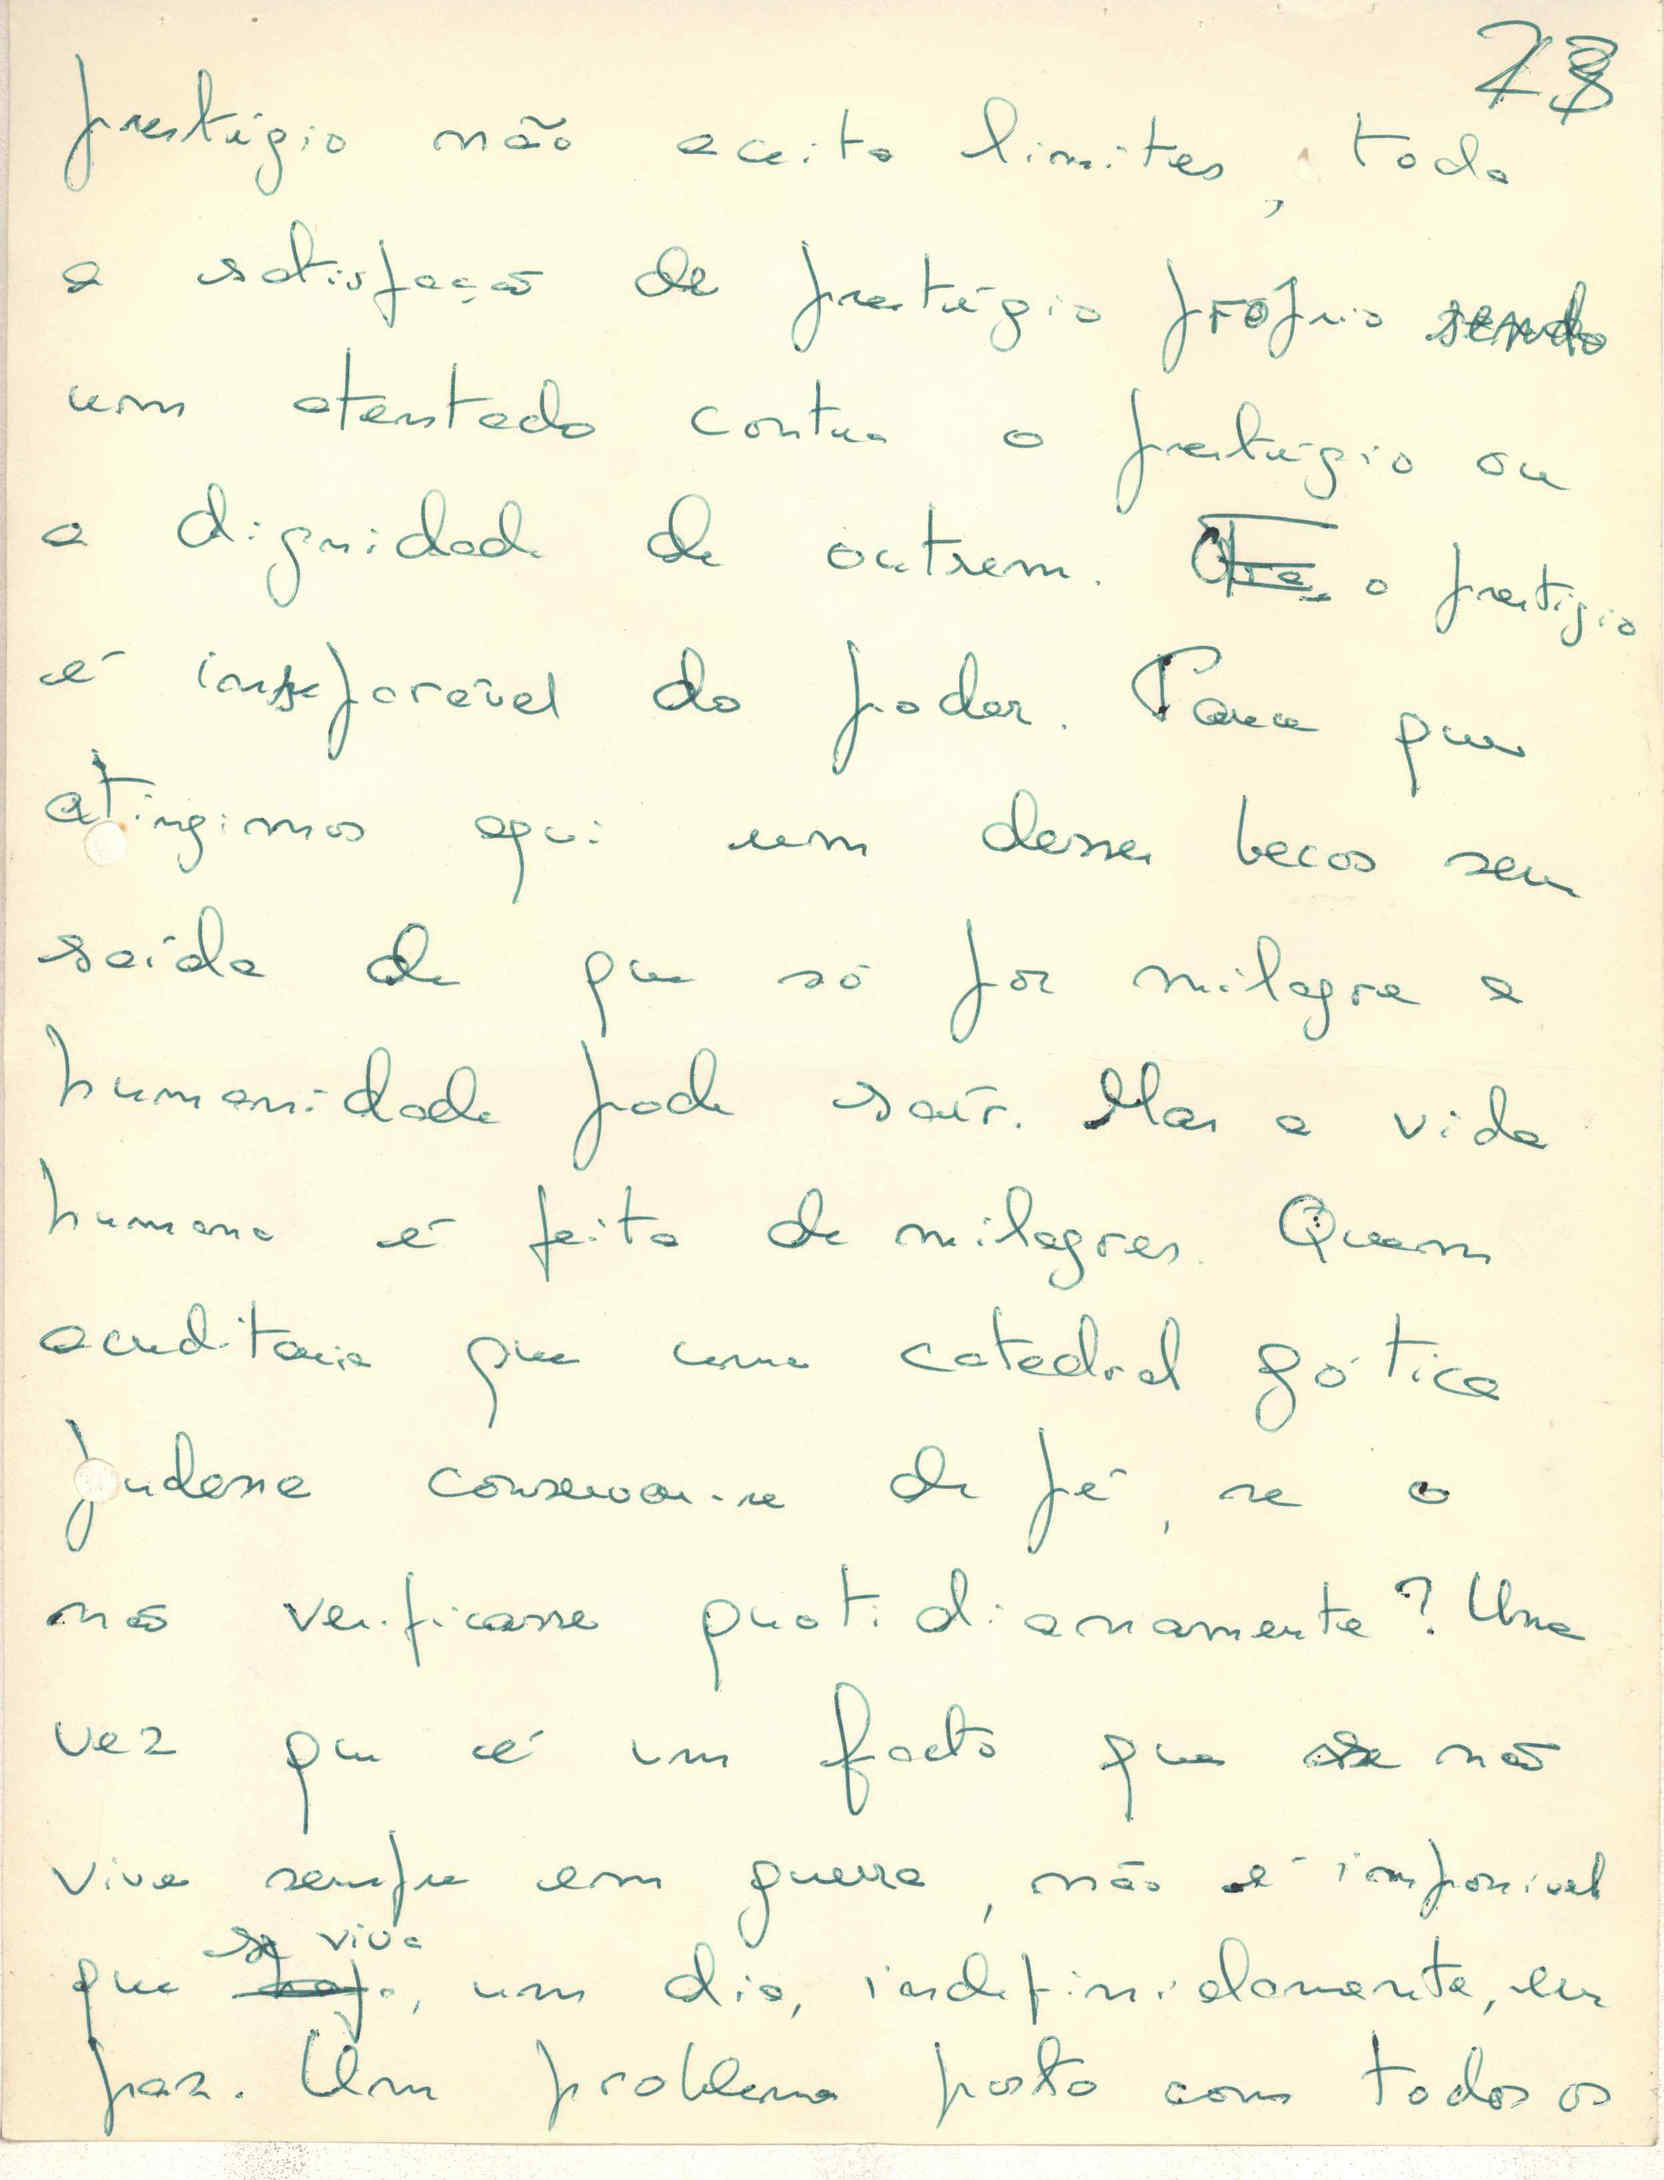 prestígio não aceita limites, toda
a satisfação de prestígio próprio sendo
um atentado contra o prestígio ou
a dignidade de outrem. O prestígio
é inseparável do poder. Parece que
atingimos aqui um desses becos sem
saída de que só por milagre a
humanidade pode sair. Mas a vida
humana é feita de milagres. Quem
acreditaria que uma catedral gótica
pudesse conservar-se de pé, se o
não verificasse quotidianamente? Uma
vez que é um facto que se não
vive sempre em guerra, não é impossível
que se viva, um dia, indefinidamente, em
paz. Um problema posto com todos os